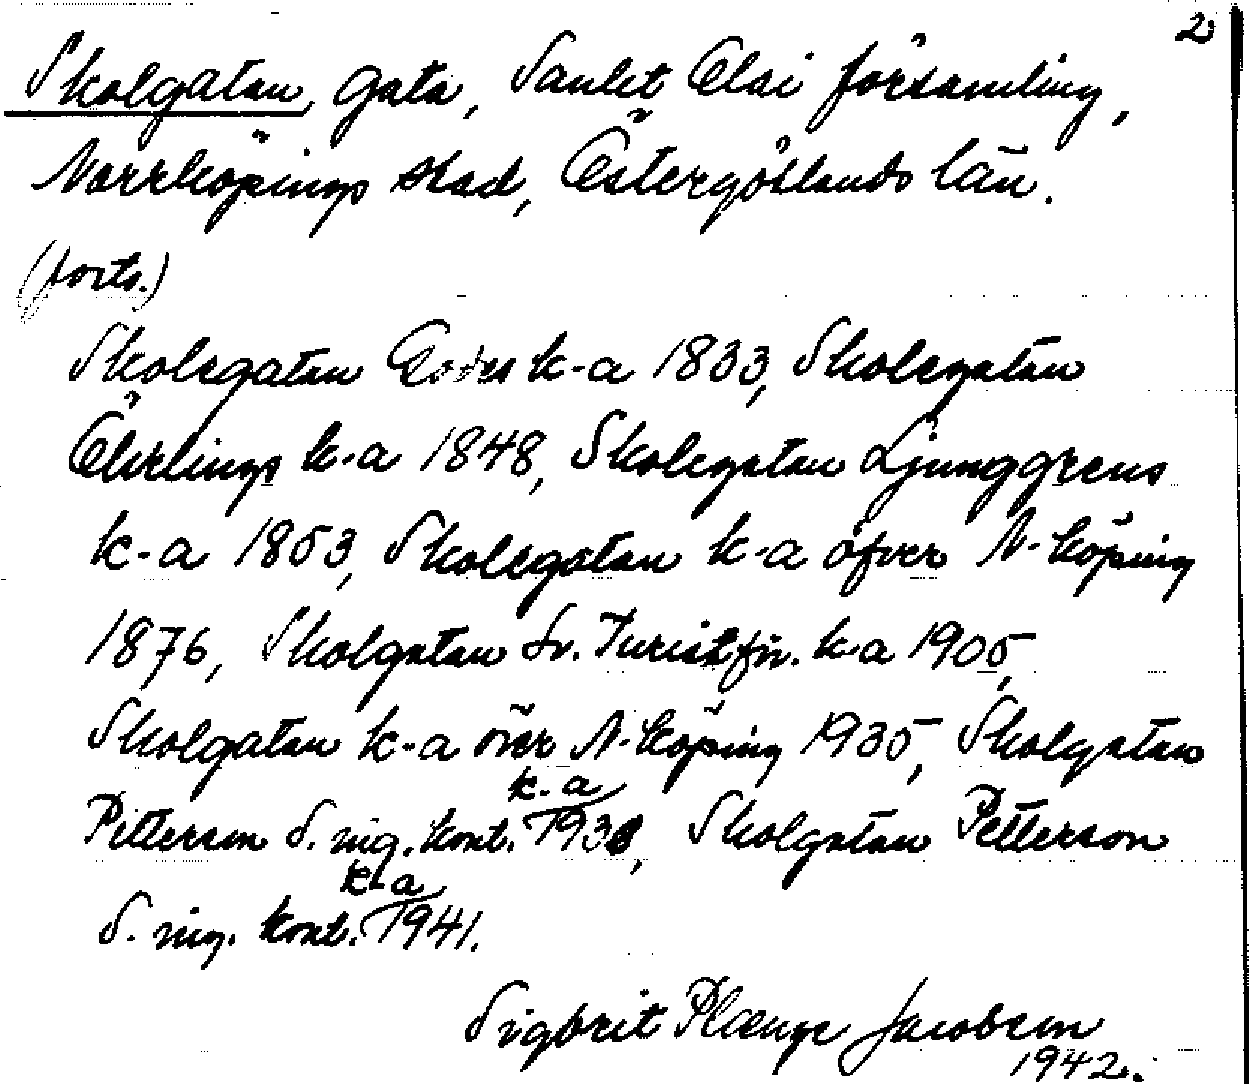 2
Skolgatan, gata, Sankt Olai församling,
Norrköpings stad, Östergötlands län.
(forts.)
Skolegatan k-a 1833, Skolegatan
Ehrlings k-a 1848, Skolegatan Ljunggrens
k-a 1853, Skolegatan k-a öfver N-köping
1876, Skolgatan Sv. Turistför. k-a 1905,
Skolgatan k-a över N-köping 1935, Skolgatan
k-a
Petterson S. ing. kont. 1938, Skolgatan Petterson
k-a
S. ing. kont. 1941.
Sigbrit Plænge Jacobson
1942.